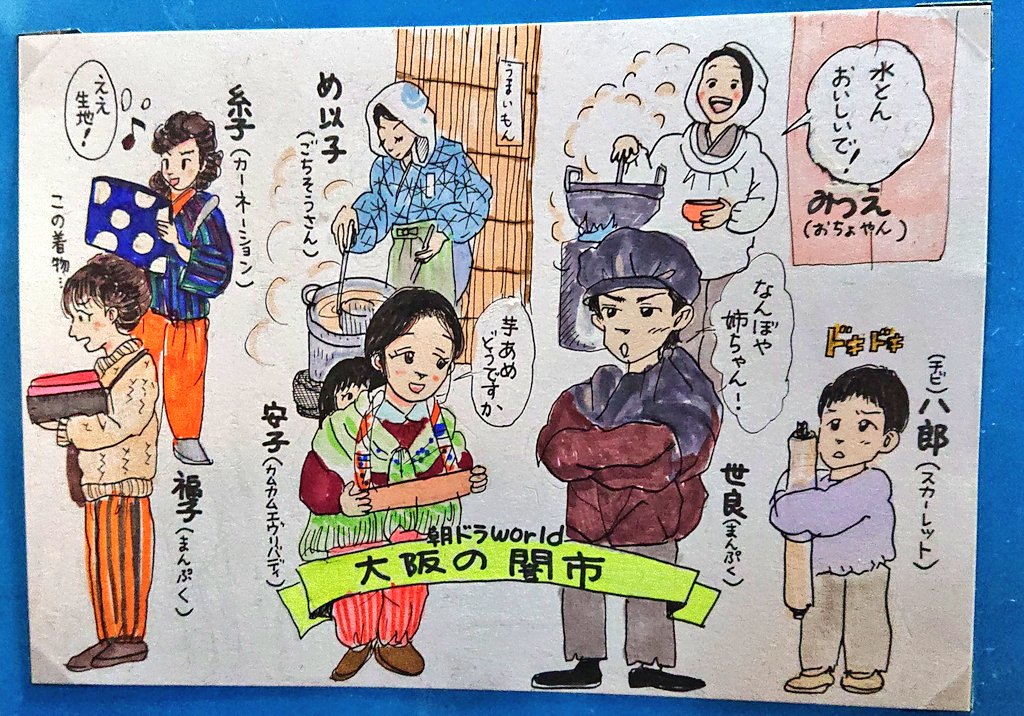 ええ
生地!
糸子(カーネーション)
この着物…
福子(まんぷく)
め以子
(ごちそうさん)
うまいもん
水とん
おいしいで!
みつえ
(おちょやん)
芋あめ
どうですか
安子(カムカムエヴリバディ)
なんぼや
姉ちゃん…
世良(まんぷく)
ドキドキ
(チビ)八郎(スカーレット)
朝ドラworld
大阪の闇市